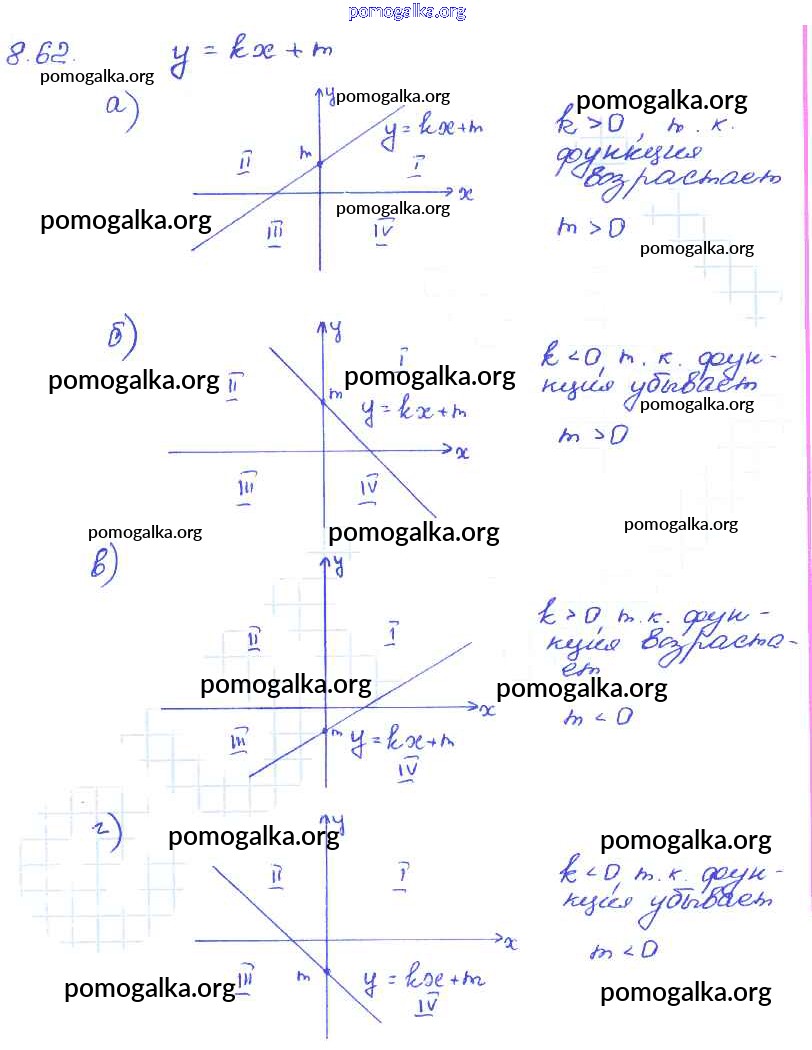 pomogalka.org
8.62. y = kx + m
pomogalka.org
а)
y
pomogalka.org
pomogalka.org
y = kx + m
k > 0, т. к.
функция
возрастает
II
m
I
x
pomogalka.org
pomogalka.org
III
IV
m > 0
pomogalka.org
б)
y
I
k < 0, т. к. фун-
кция убывает
pomogalka.org
II
pomogalka.org
m
y = kx + m
pomogalka.org
m > 0
x
III
IV
pomogalka.org
pomogalka.org
pomogalka.org
в)
y
k > 0, т. к. фун-
кция возраста-
ет
II
I
pomogalka.org
pomogalka.org
x
m < 0
III
m
y = kx + m
IV
г)
y
pomogalka.org
pomogalka.org
II
I
k < 0, т. к. фун-
кция убывает
x
m < 0
III
m
y = kx + m
pomogalka.org
IV
pomogalka.org